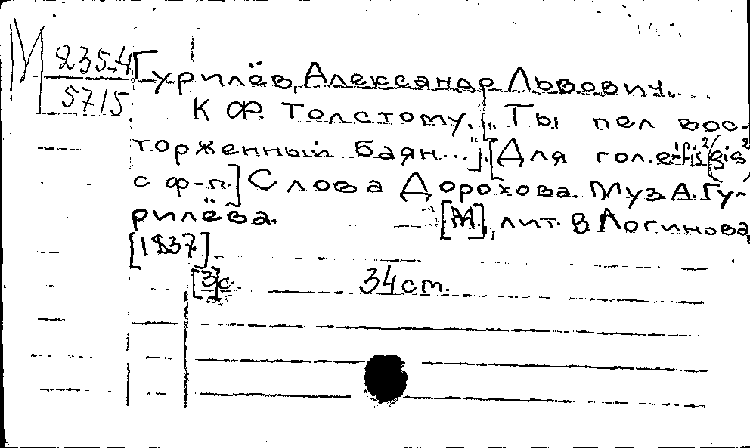 М 235-4
5715
Гурилёв, Александр Львович.
К Ф. Толстому. ["Ты пел вос-
торженный баян..."]. [Для гол. e-fis²(gis²)
с ф-п.] Слова Дорохова. Муз. А. Гу-
рилёва.          [М], лит. В Логинова,
[1837].
[3]с.          34 см.